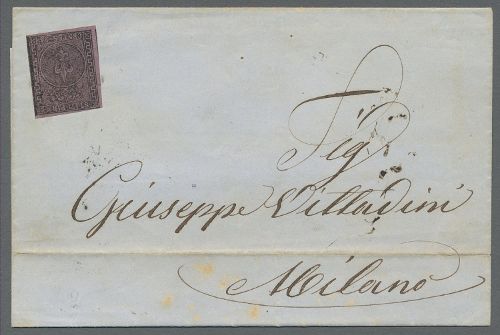 Sig.
Giuseppe Vittadini
Milano